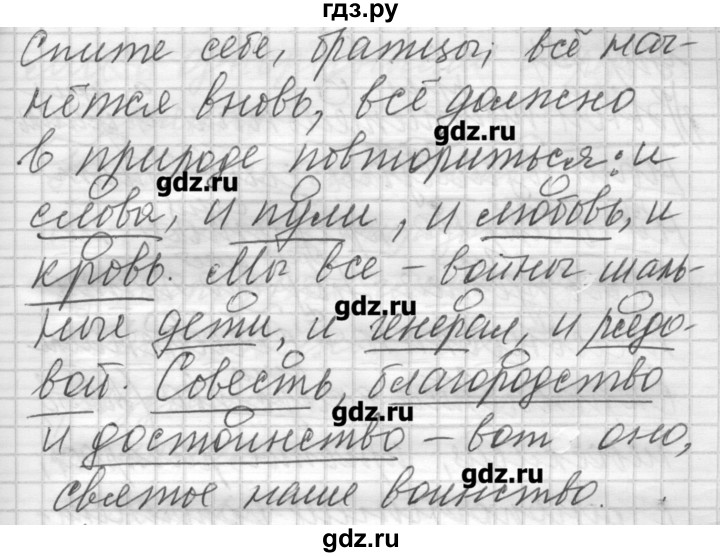 гдз.ру
Спите себе, братцы, всё нач-
нётся вновь, всё должно
gdz.ru
в природе повториться: и
gdz.ru
слова, и пули, и любовь, и
кровь. Мы все – войны шаль-
gdz.ru
ные дети, и генерал, и рядо-
вой. Совесть, благородство
gdz.ru
и достоинство – вот оно,
gdz.ru
святое наше воинство.